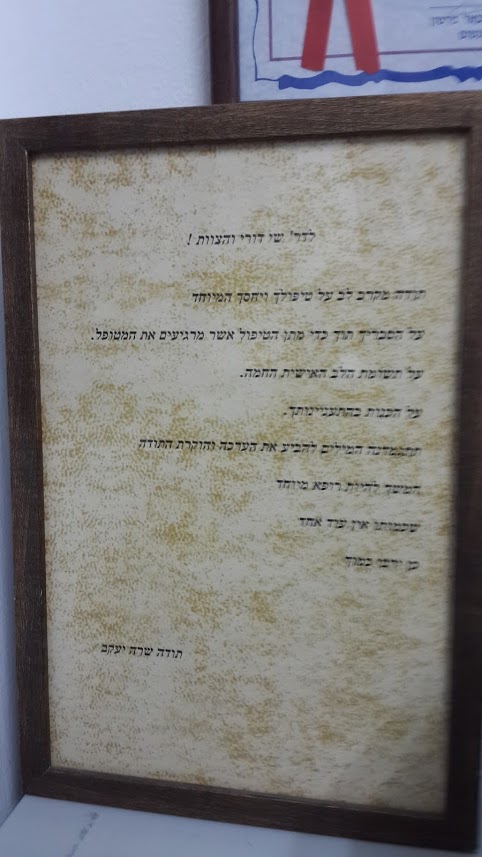 באר' פרטון
לדר' שי דורי והצוות !
תודה מקרב לב על טיפולך ויחסך המיוחד
על הסבריך תוך כדי מתן הטיפול אשר מרגיעים את המטופל.
על תשומת הלב האישית החמה.
על הכנות בהתעניינותך.
תקצרנה המילים להביע את הערכה והוקרת התודה
המשך להיות רופא מיוחד
שכמותו אין עוד אחד
כן ירבו כמוך
תודה שרה יעקב